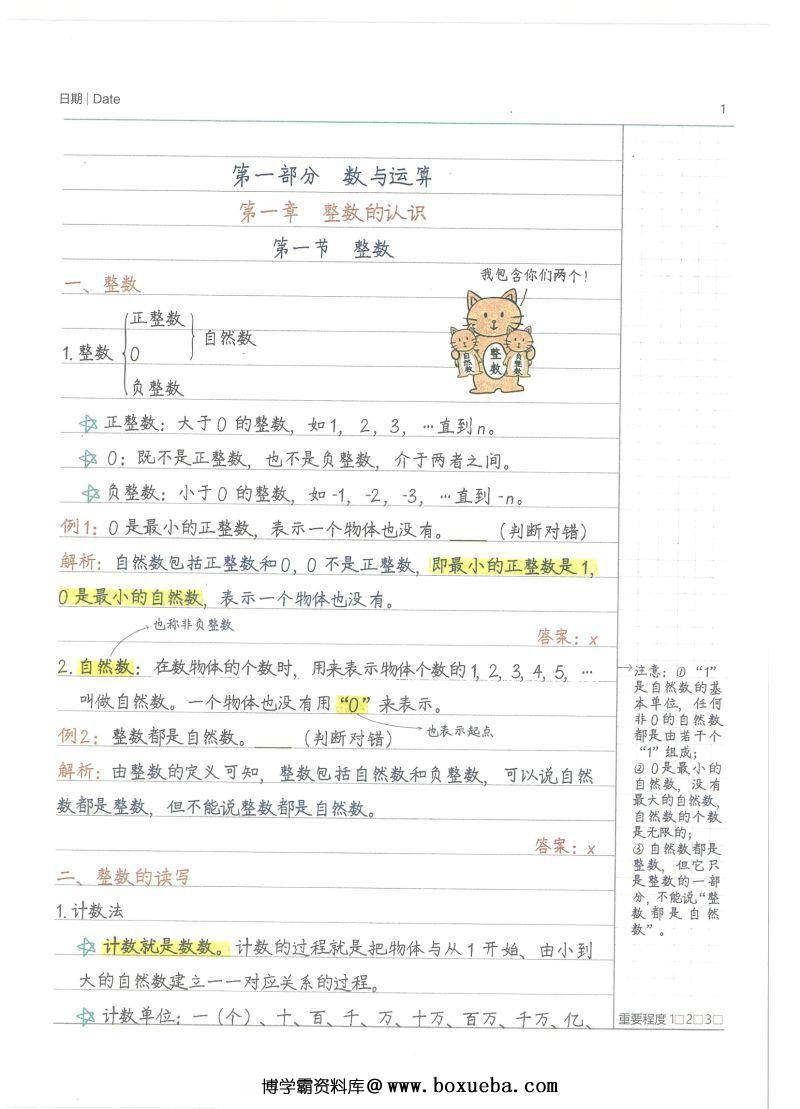 日期 | Date
1
第一部分 数与运算
第一章 整数的认识
第一节 整数
我包含你们两个!
一、整数
正整数
1.整数 0 自然数
负整数
自然数 整数 负整数
☆ 正整数：大于0的整数，如1，2，3，…直到n。
☆ 0：既不是正整数，也不是负整数，介于两者之间。
☆ 负整数：小于0的整数，如-1，-2，-3，…直到-n。
例1：0是最小的正整数，表示一个物体也没有。____（判断对错）
解析：自然数包括正整数和0，0不是正整数，即最小的正整数是1，
0是最小的自然数，表示一个物体也没有。
也称非负整数
答案：x
2.自然数：在数物体的个数时，用来表示物体个数的1，2，3，4，5，…
叫做自然数。一个物体也没有用“0”来表示。
也表示起点
例2：整数都是自然数。____（判断对错）
解析：由整数的定义可知，整数包括自然数和负整数，可以说自然
数都是整数，但不能说整数都是自然数。
答案：x
二、整数的读写
1.计数法
☆ 计数就是数数。计数的过程就是把物体与从1开始、由小到
大的自然数建立一一对应关系的过程。
☆ 计数单位：一（个）、十、百、千、万、十万、百万、千万、亿、
注意：① “1”
是自然数的基
本单位，任何
非0的自然数
都是由若干个
“1”组成；
② 0是最小的
自然数，没有
最大的自然数，
自然数的个数
是无限的；
③ 自然数都是
整数，但它只
是整数的一部
分，不能说“整
数都是自然
数”。
重要程度 1□2□3□
博学霸资料库@www.boxueba.com